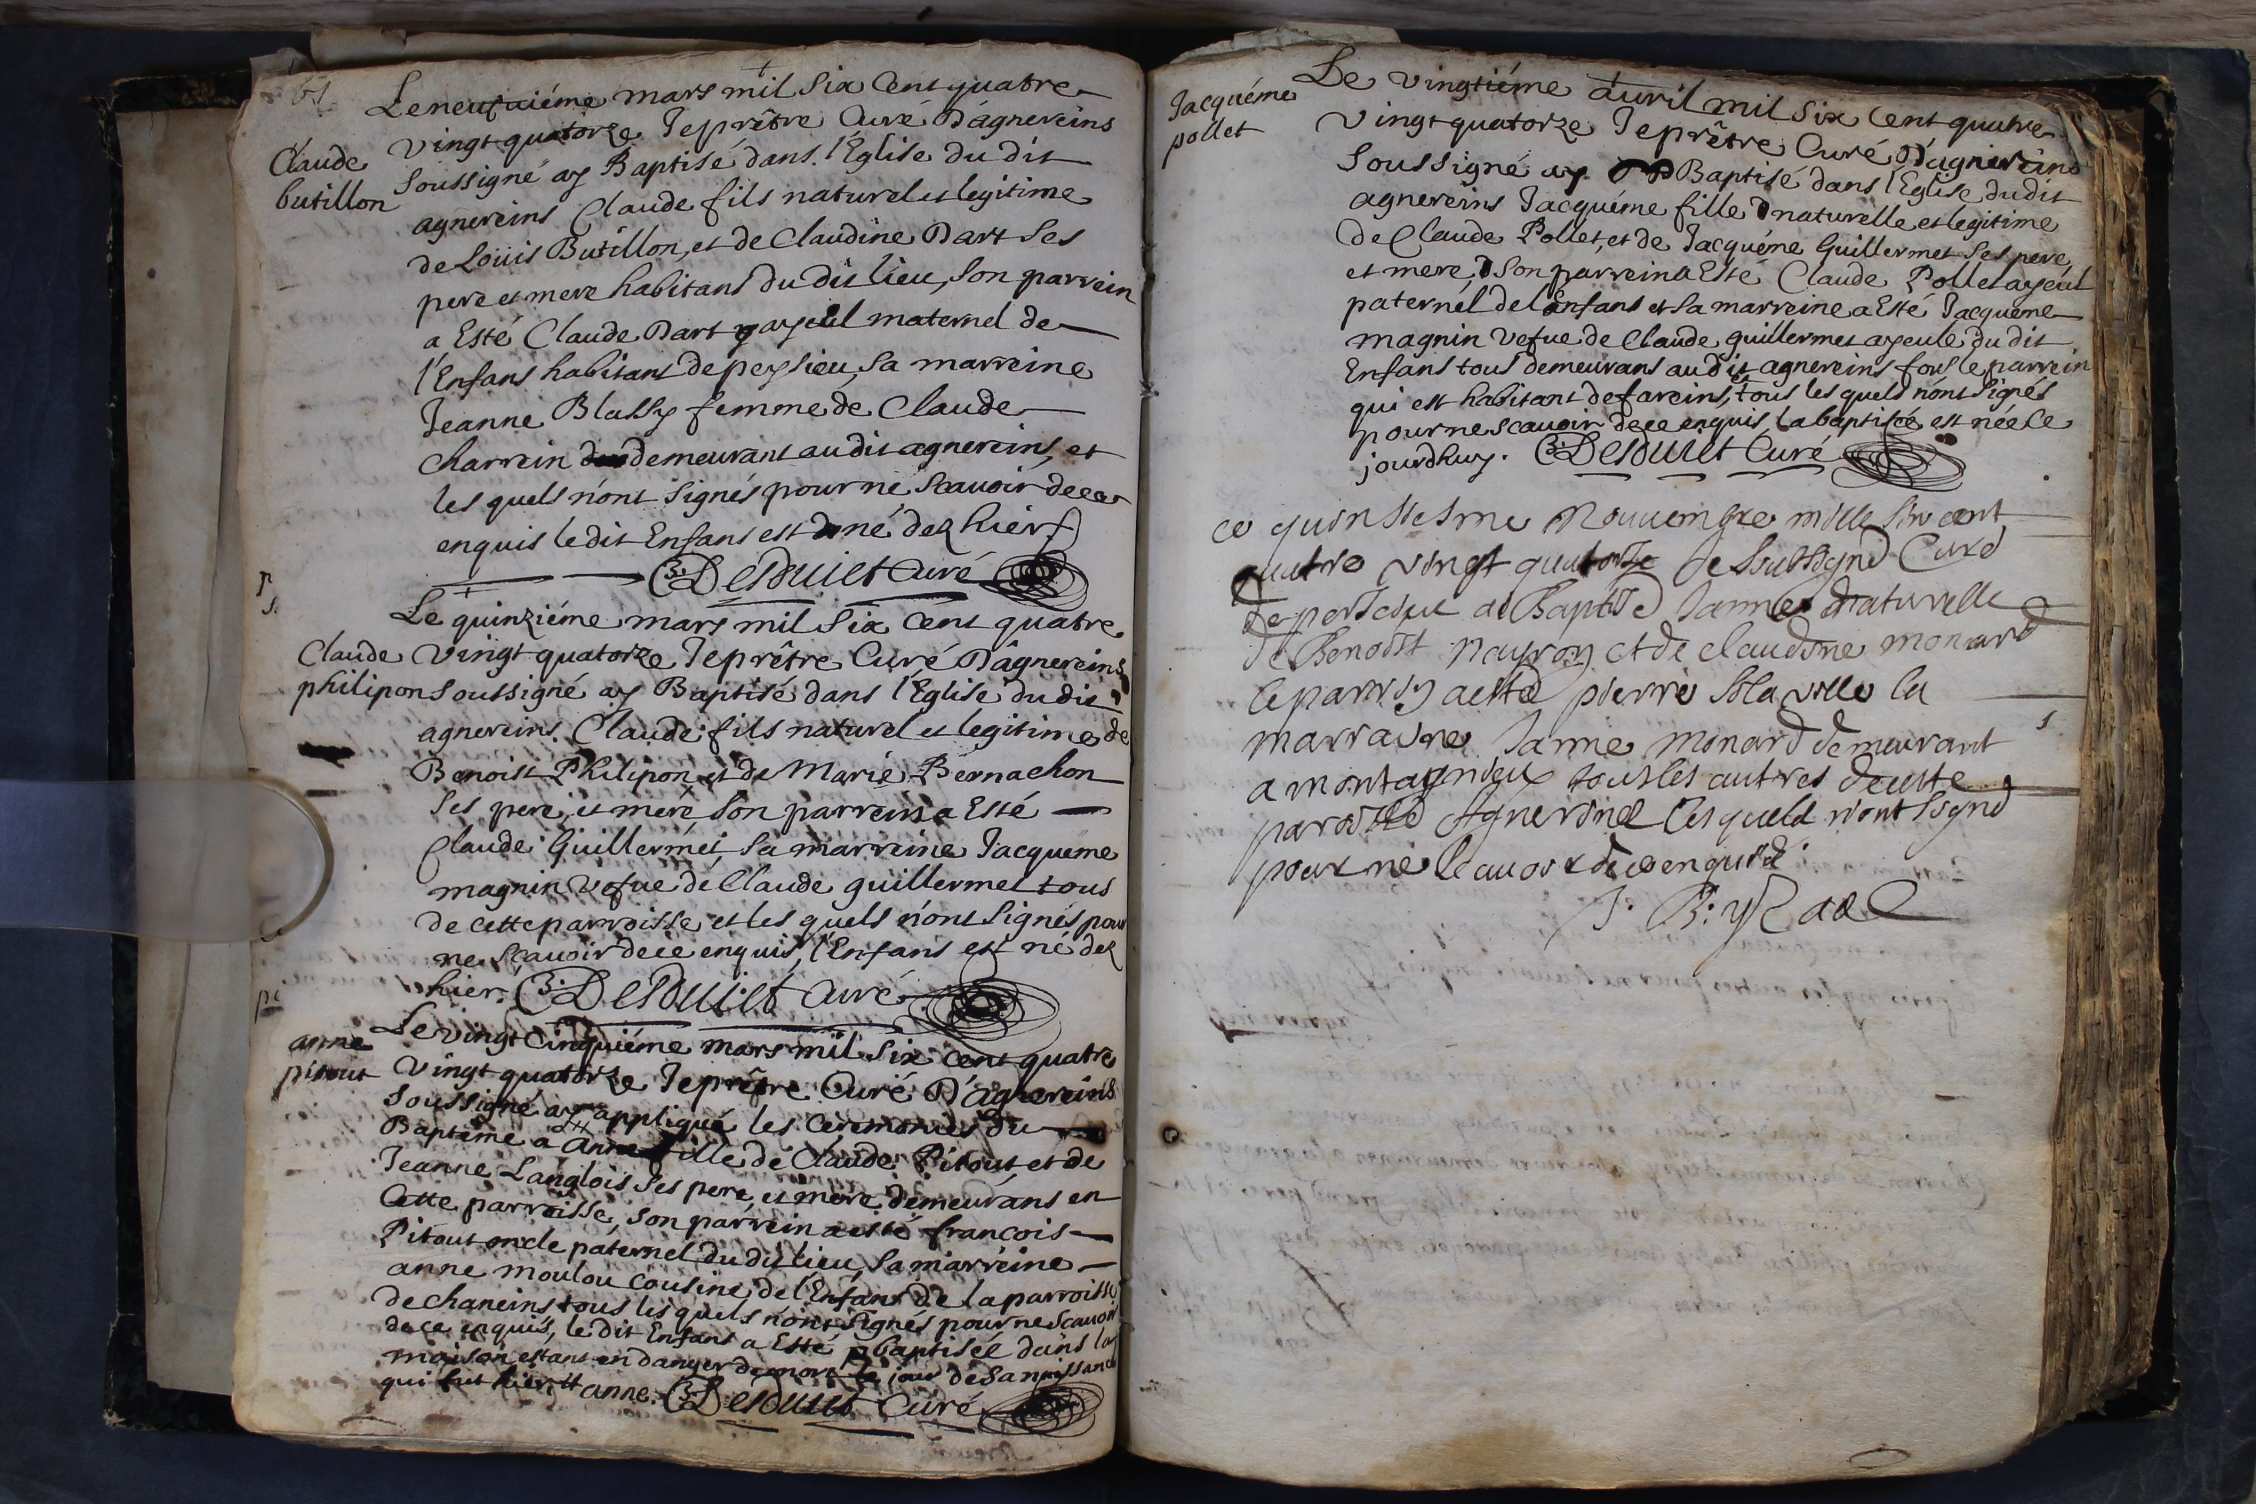 Le neufuiéme mars mil Six Cent quatre
Claude
butillon
Vingt quatorze Je prêtre Curé D'ágnereins
Soussigné ay Baptisé dans l'Eglise du dit
agnereins Claude fils naturel et legitime
de Loüis Butillon, et de Claudine Dart Ses
pere et mere habitans du dit lieu, Son parrein
a Esté Claude Dart ayeul maternel de
l'Enfans habitant de peysieu, Sa marreine
Jeanne Blassy femme de Claude
Charrein demeurant au dit agnereins, et
les quels n'ont Signés pour ne Scauoir de ce
enquis le dit Enfans est né dez hier
B: Desduiet Curé
Le quinziéme mars mil Six Cent quatre
Claude
philipon
Vingt quatorze Je prêtre Curé D'âgnereins
Soussigné ay Baptisé dans l'Eglise du dit
agnereins. Claude fils naturel et legitime de
Benoist Philipon et de Marie Bernachon
Ses pere, et mere Son parrein a Esté
Claude Guillermet, Sa marreine Jacqueme
magnin Vefue de Claude guillermet tous
de cette parroisse, et les quels n'ont Signés pour
ne Scauoir de ce enquis, l'Enfans est né dez
hier. B: Desduiet Curé
anne
pitout
Le vingt Cinquiéme mars mil Six Cent quatre
Vingt quatorze Je prêtre Curé D'ágnereins
Soussigné ay appliqué les Ceremonies du
Baptéme a Anne fille de Claude Pitout, et de
Jeanne Langlois Ses pere, et mere demeurans en
Cette parroisse, Son parrein a esté francois
Pitout oncle paternel du dit lieu, Sa marreine
anne Moulou Cousine de l'Enfans de la parroisse
de chaneins tous les quels n'ont Signés pour ne Scauoir
de ce enquis, le dit Enfans a Esté baptisée dans la
maison estant en danger de mort le jour de Sa naissance
qui fut hier. anne. B: Desduiet Curé
Jacquéme
pollet
Le Vingtiéme auril mil Six Cent quatre
Vingt quatorze Je prêtre Curé D'agnereins
Soussigné ay Baptisé dans l'Eglise du dit
agnereins Jacquéme fille naturelle et legitime
de Claude Pollet, et de Jacquéme Guillermet Ses pere,
et mere, Son parrein a Este Claude Pollet ayeul
paternél de l'Enfans et Sa marreine a Esté Jacqueme
magnin Vefue de Claude guillermet ayeule du dit
Enfans tous demeurans au dit agnereins fors le parrein
qui est habitant de fareins, et tous les quels n'ont Signés
pour ne scauoir de ce enquis, la baptisée est née ce
jourdhuy. B: Desduiet Curé
ce quinsiesme Nouuembre mille six cent
quatre vingt quatorse Je soussigné Curé
de percieux ai Baptisé Janne naturelle
de Benoist payron et de claudine monard
le parrin a esté pierre la ville la
marraine Janne monard demeurant
a montagnieux tous les autres de cette
paroisse Agnerins lesquels n'ont signé
pour ne scauoir de ce enquis